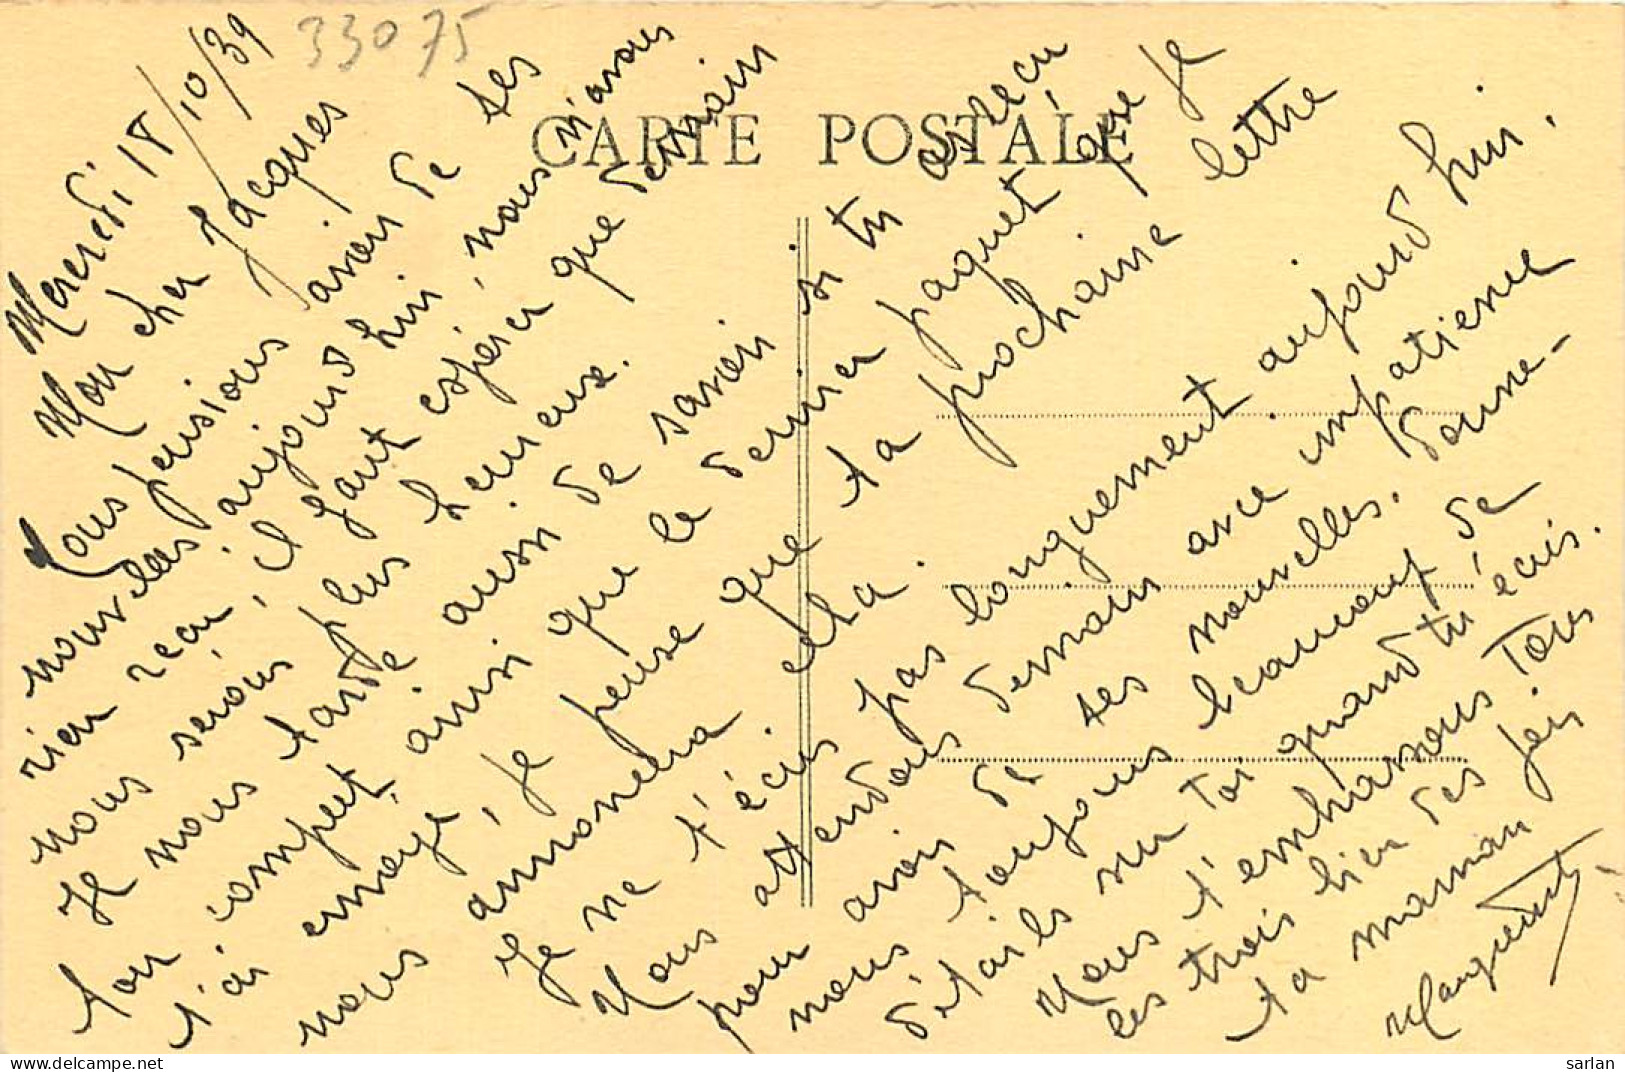 33075
CARTE POSTALE
Mercredi 18/10/39
Mon cher Jacques
Nous pensions avoir de tes
nouvelles aujourd hui, nous n'avons
rien reçu, il faut espérer que demain
nous serons plus heureux.
Il nous tarde aussi de savoir si tu as reçu
ton ainsi que le dernier paquet que je
t'ai envoyé, je pense que ta prochaine lettre
nous annoncera cela.
Je ne t'écris pas longuement aujourd hui.
Nous attendons demain avec impatience
pour avoir de tes nouvelles. Donne-
nous toujours beaucoup de
détails sur toi quand tu écris.
Nous t'embrassons tous
les trois bien des fois
ta maman
Marguerite
sarlan